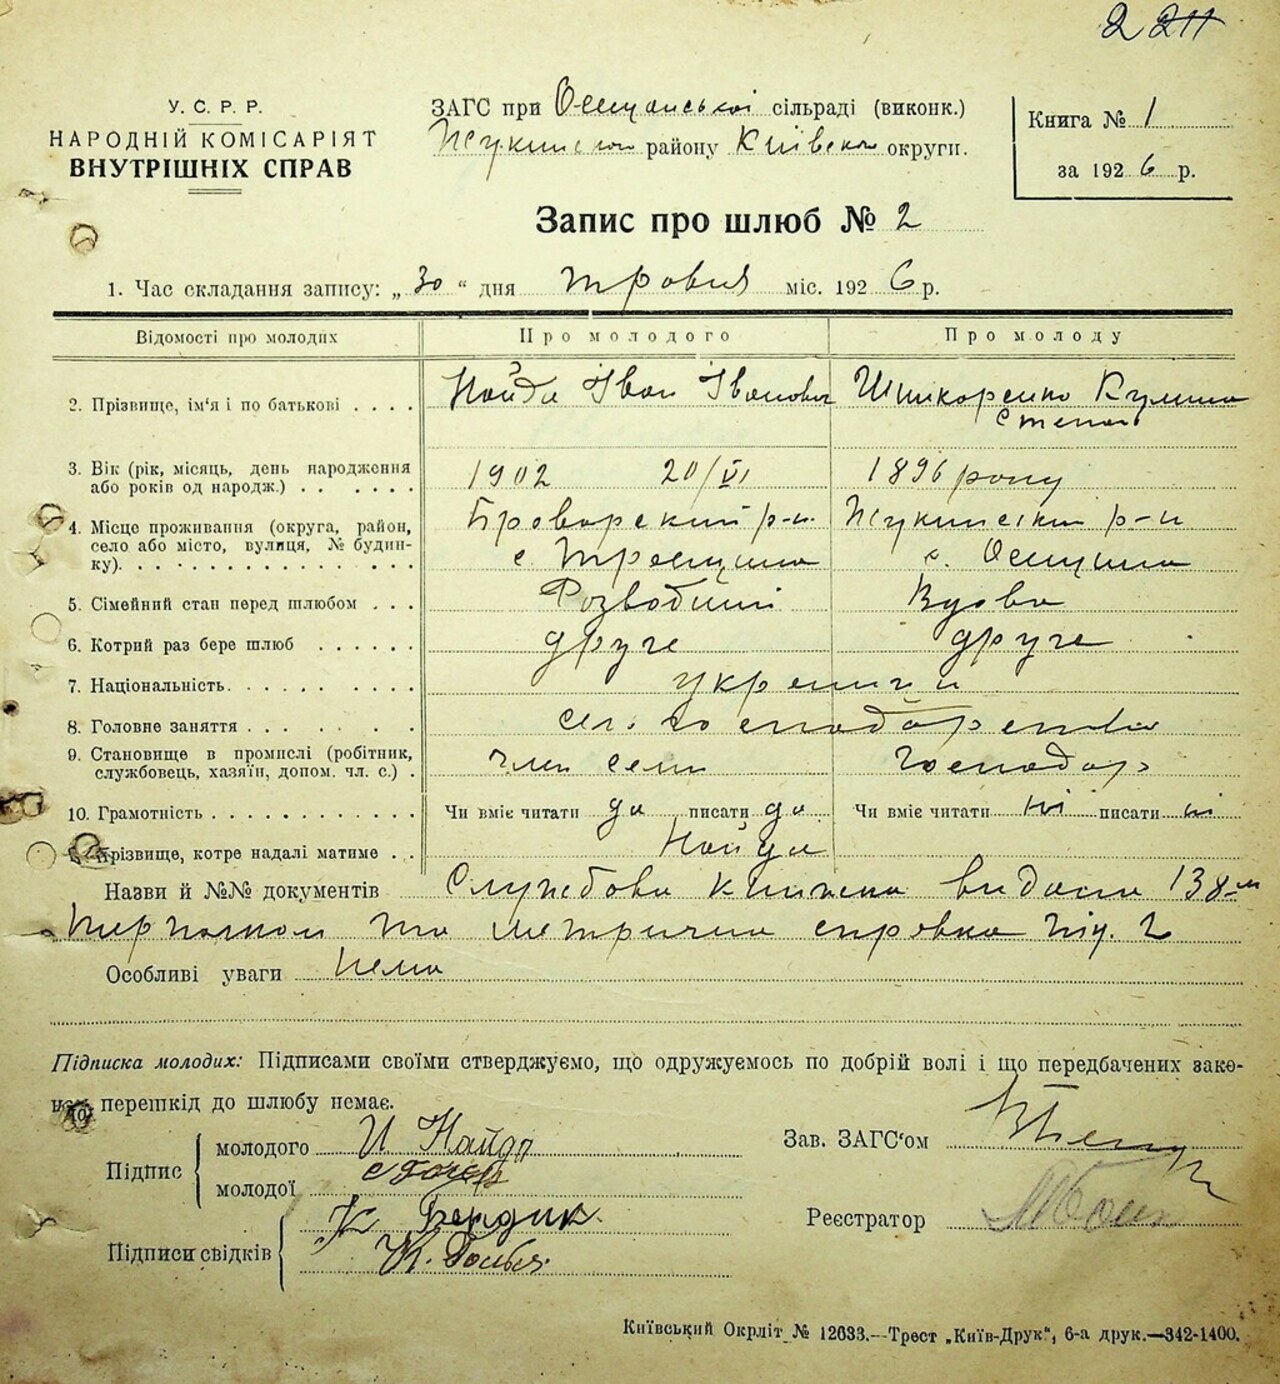 2
У. С. Р. Р.
НАРОДНІЙ КОМІСАРІЯТ
ВНУТРІШНІХ СПРАВ
ЗАГС при Осещанської сільраді (виконк.)
району Київської округи.
Книга № 1
за 1926 р.
Запис про шлюб № 2
1. Час складання запису: „ 30 “ дня травня міс. 1926 р.
Відомості про молодих Про молодого Про молоду
2. Прізвище, ім'я і по батькові . . . . Найда Іван Іванович Шпикоренко
3. Вік (рік, місяць, день народження
або років од народж.) . . . . . . . 1902 20/VI 1896 року
4. Місце проживання (округа, район,
село або місто, вулиця, № будин-
ку). . . . . . . . . . . . . . . . Броварский р-н р-н
с. Троещина с. Осещина
5. Сімейний стан перед шлюбом . . . Розводний Вдова
6. Котрий раз бере шлюб . . . . . . друге друге
7. Національність. . . . . . . . . . українці
8. Головне заняття . . . . . . . . . сіл. господарство
9. Становище в промислі (робітник,
службовець, хазяїн, допом. чл. с.) . член семи Господар
10. Грамотність . . . . . . . . . . . . Чи вміє читати да писати да Чи вміє читати ні писати ні
Прізвище, котре надалі матиме . . Найда
Назви й №№ документів Службова книжка видана 138-м
та метрична справка під. 2
Особливі уваги Нема
Підписка молодих: Підписами своїми стверджуємо, що одружуємось по добрій волі і що передбачених зако-
ном перешкід до шлюбу немає.
Підпис
молодого И Найда
молодої
Підписи свідків
К Бердик
К.
Зав. ЗАГС'ом
Реєстратор
Київський Окрліт № 12633.—Трест „Київ-Друк“, 6-а друк.—342-1400.